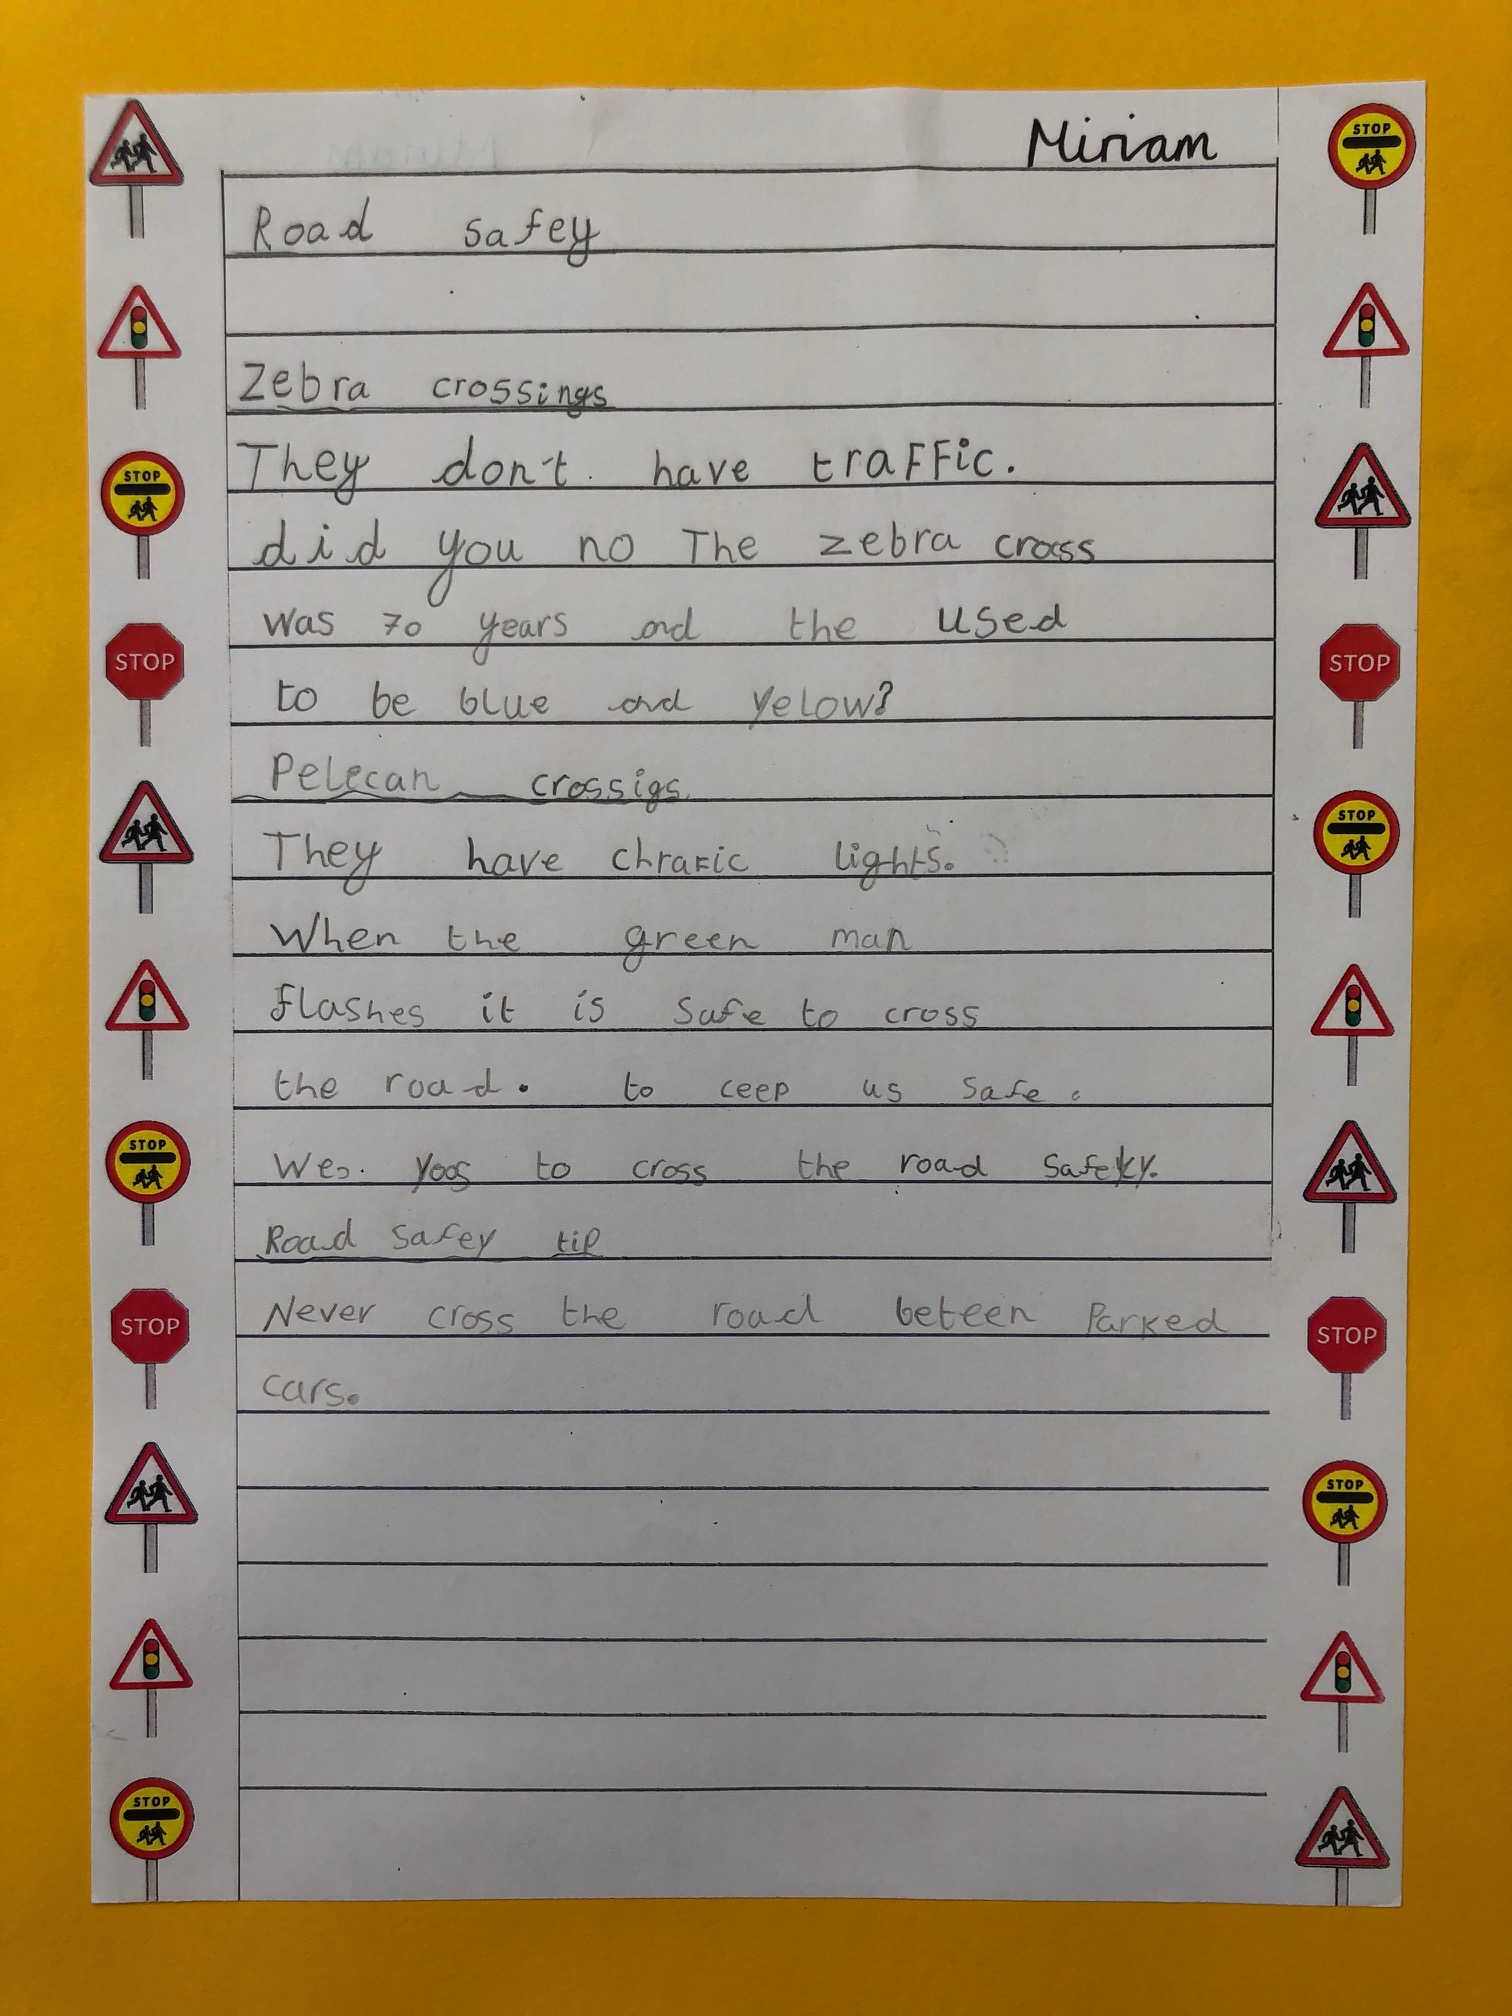 Miriam
Road safey
Zebra crossings
They don't have traffic.
did you no The zebra cross
was 70 years and the used
to be blue and yelow?
Pelecan crossigs
They have chrafic lights.
When the green man
flashes it is safe to cross
the road. to ceep us safe.
We. yoos to cross the road safely.
Road safey tip
Never cross the road beteen Parked
cars.
STOP
STOP
STOP
STOP
STOP
STOP
STOP
STOP
STOP
STOP
STOP